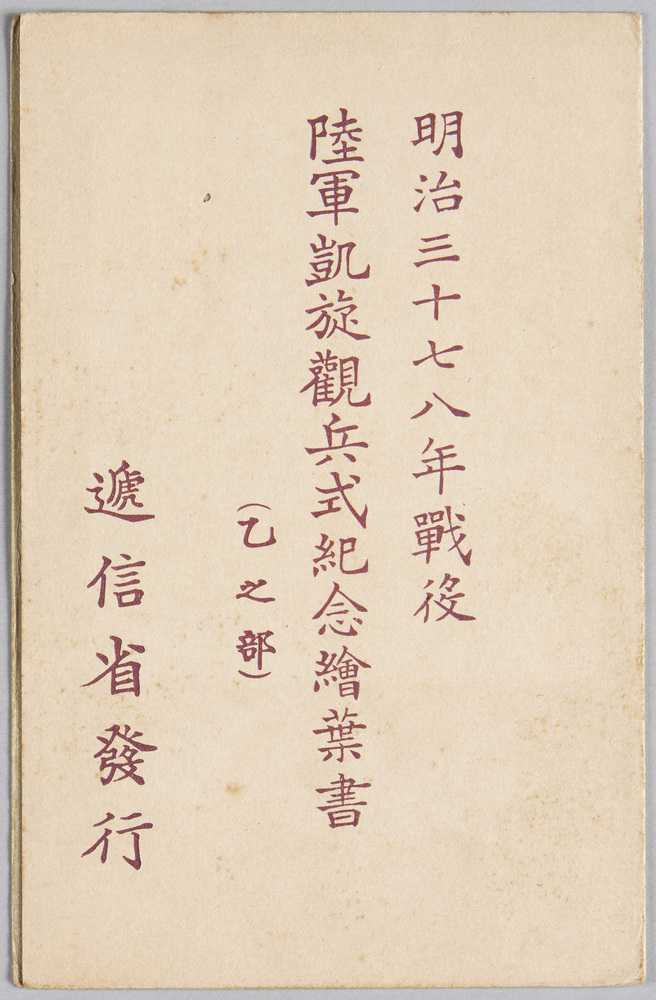 明治三十七八年戰役
陸軍凱旋觀兵式紀念繪葉書
(乙之部)
遞信省發行